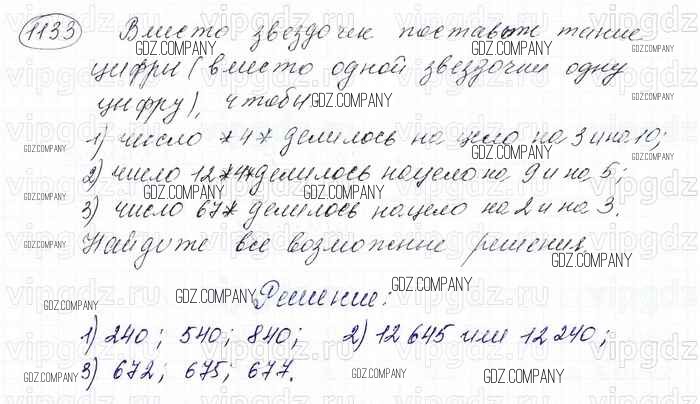 1133 Вместо звездочек поставьте такие
цифры (вместо одной звездочки одну
цифру), чтобы
1) число *4* делилось на цело на 3 и на 10;
2) число 12*4* делилось нацело на 9 и на 5;
3) число 67* делилось нацело на 2 и на 3.
Найдите все возможные решения.
Решение:
1) 240; 540; 840; 2) 12 645 или 12 240;
3) 672; 675; 677.
GDZ.COMPANY
vipgdz.ru